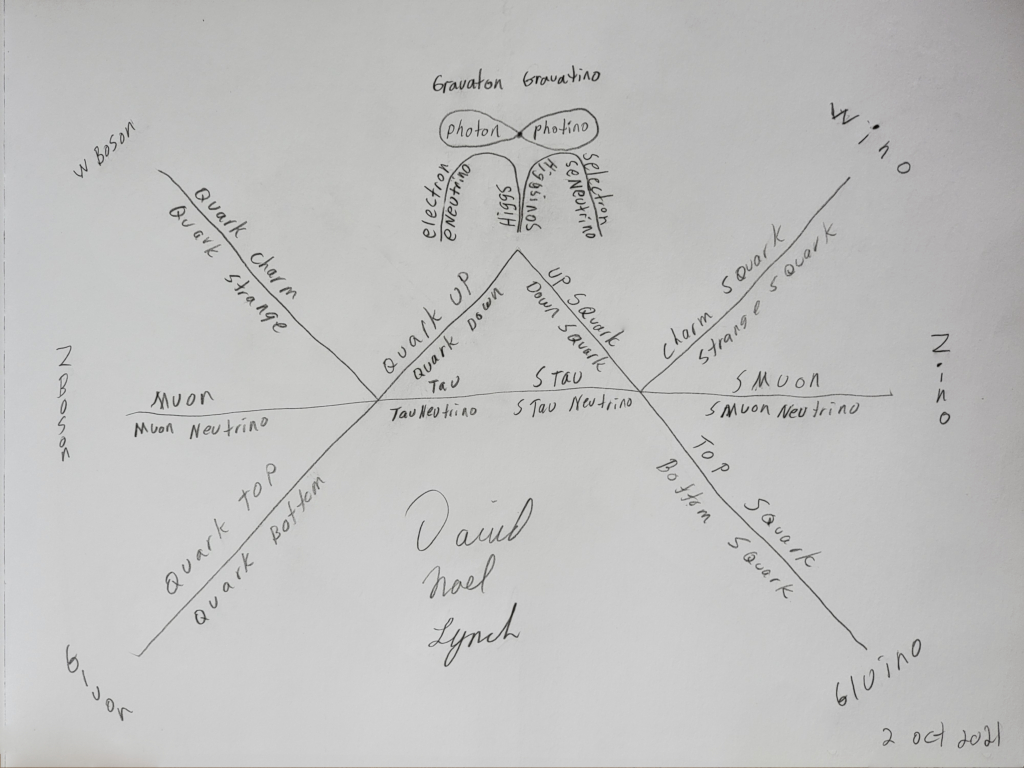 Gravaton Gravatino
photon photino
W Boson
Wino
electron
eNeutrino
Higgs
Higgsinos
selectron
seNeutrino
Quark Charm
Quark Strange
Quark UP
Quark Down
UP Squark
Down Squark
Charm Squark
Strange Squark
Z Boson
Zino
Muon
Muon Neutrino
Tau
Tau Neutrino
S Tau
S Tau Neutrino
S Muon
S Muon Neutrino
Quark TOP
Quark Bottom
TOP Squark
Bottom Squark
David
Noel
Lynch
Gluon
Gluino
2 Oct 2021